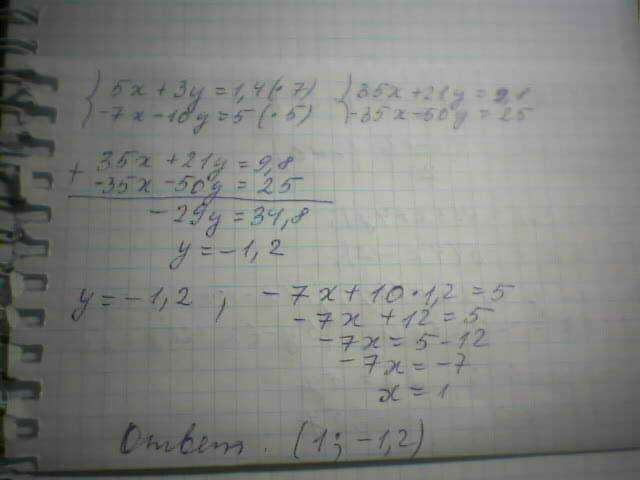 { 5x + 3y = 1,4 (· 7) { 35x + 21y = 9,1
-7x - 10y = 5 (· 5) -35x - 50y = 25
+ 35x + 21y = 9,8
-35x - 50y = 25
-29y = 34,8
y = -1,2
y = -1,2 ; -7x + 10 · 1,2 = 5
-7x + 12 = 5
-7x = 5 - 12
-7x = -7
x = 1
Ответ. (1; -1,2)